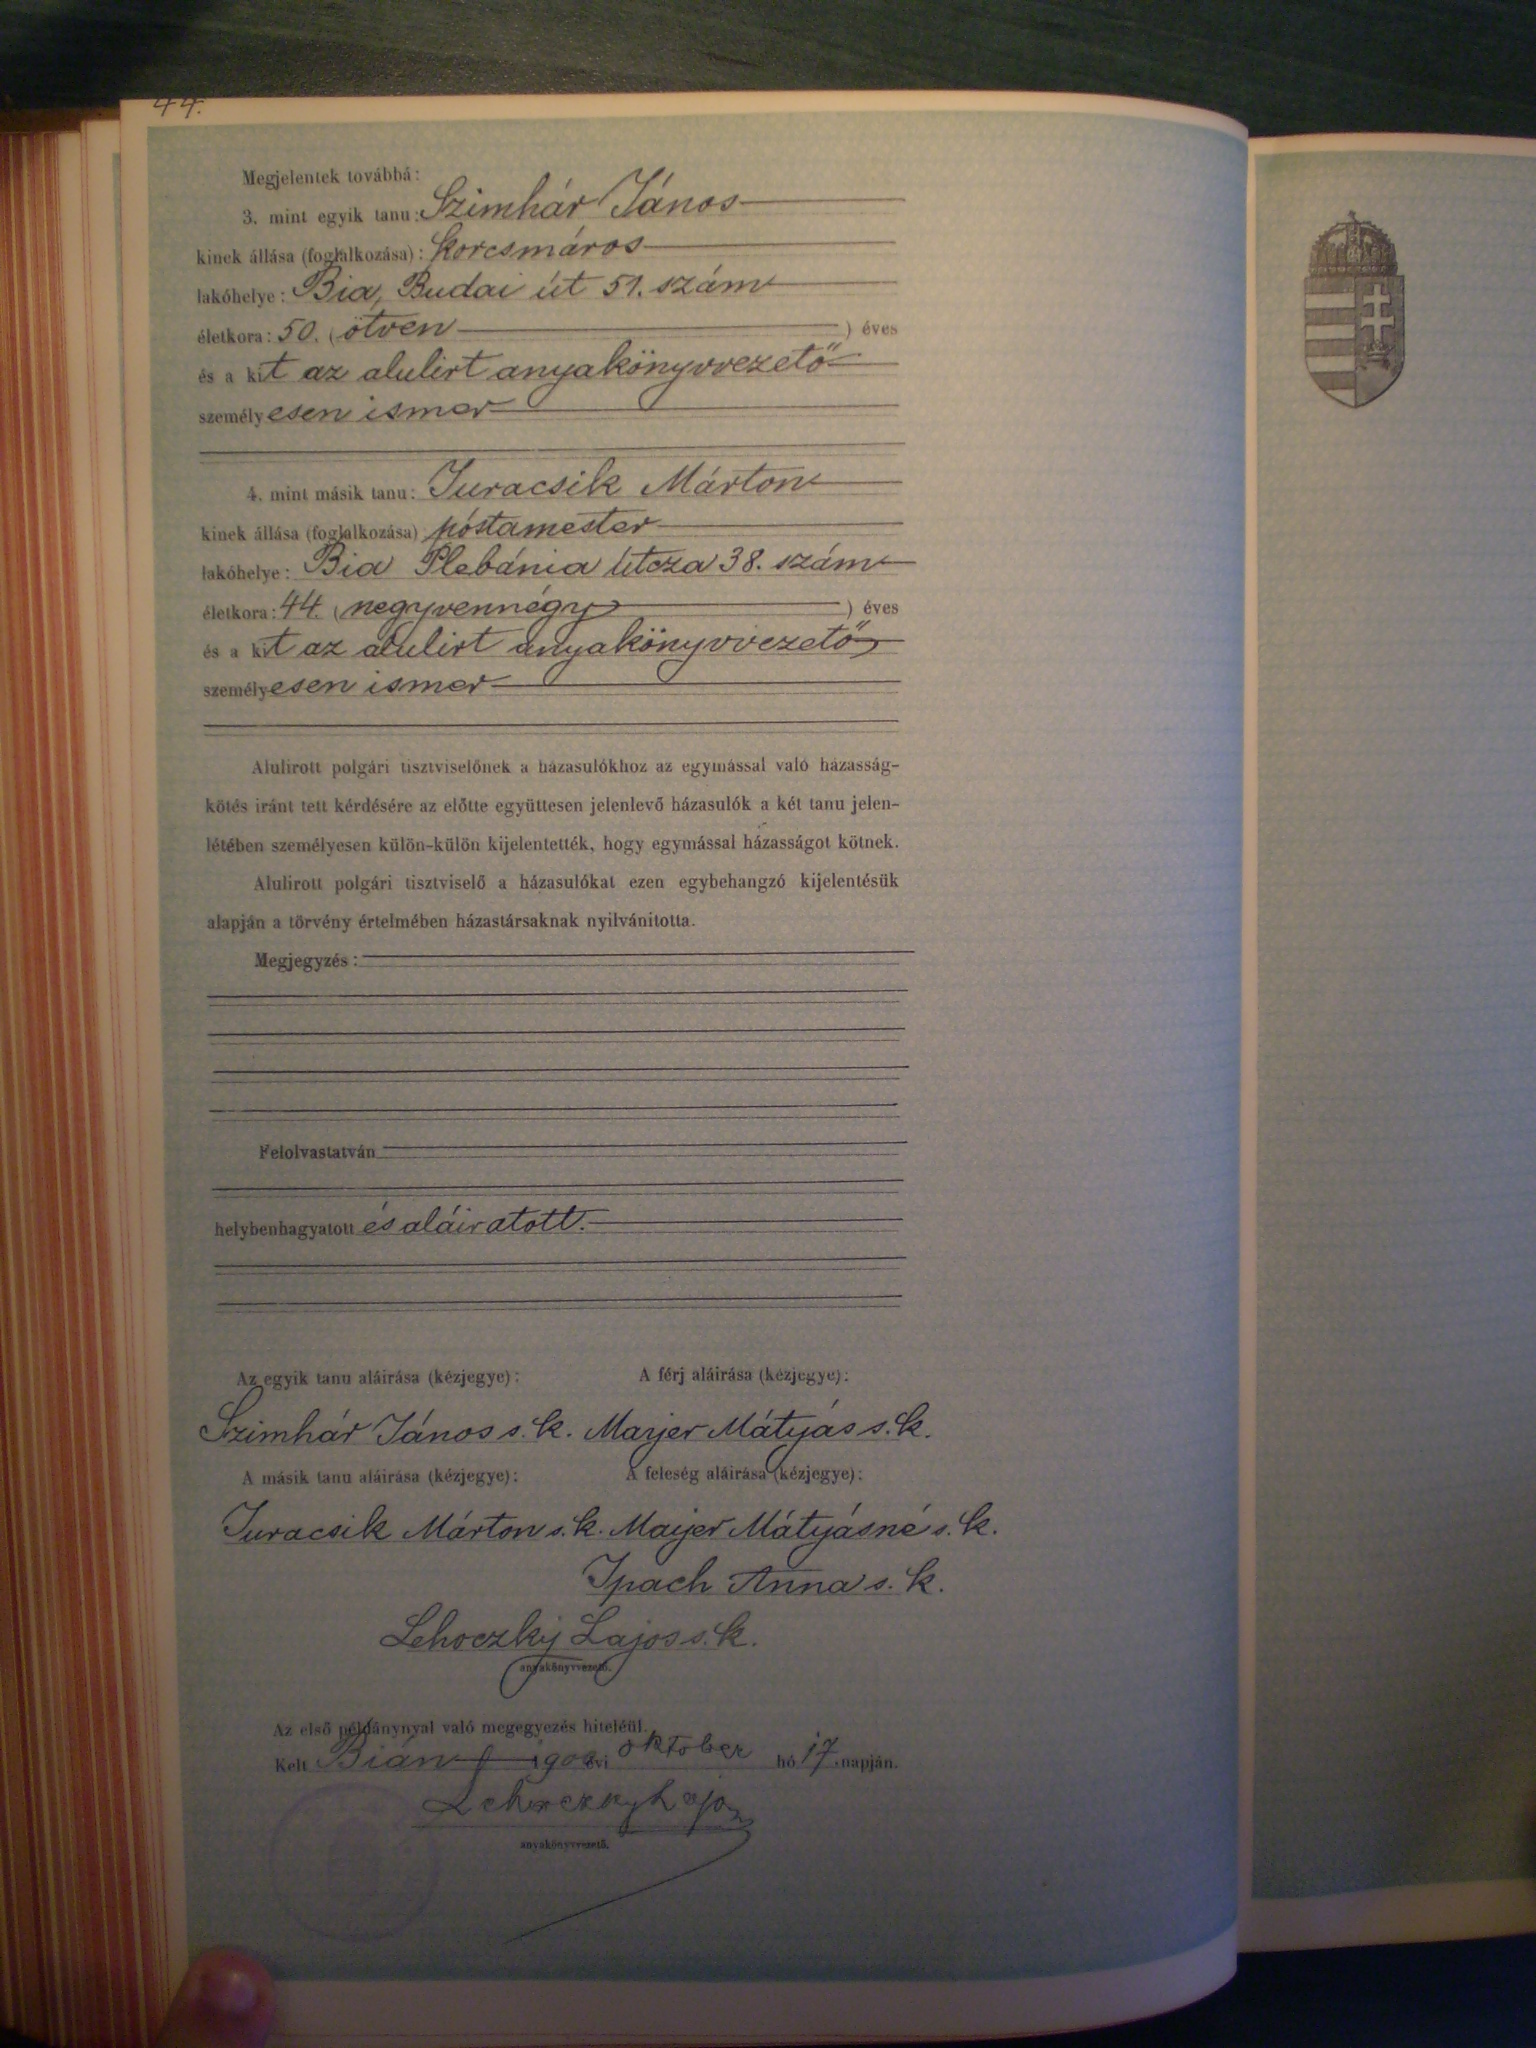 44.
Megjelentek továbbá:
3. mint egyik tanu: Szimhár János
kinek állása (foglalkozása): korcsmáros
lakóhelye: Bia, Budai út 51. szám
életkora: 50. (ötven) éves
és a kit az alulirt anyakönyvvezető
személyesen ismer
4. mint másik tanu: Juracsik Márton
kinek állása (foglalkozása) póstamester
lakóhelye: Bia Plebánia útcza 38. szám
életkora: 44. (negyvennégy) éves
és a kit az alulirt anyakönyvvezető
személyesen ismer
Alulirott polgári tisztviselőnek a házasulókhoz az egymással való házasság-
kötés iránt tett kérdésére az előtte együttesen jelenlevő házasulók a két tanu jelen-
létében személyesen külön-külön kijelentették, hogy egymással házasságot kötnek.
Alulirott polgári tisztviselő a házasulókat ezen egybehangzó kijelentésük
alapján a törvény értelmében házastársaknak nyilvánitotta.
Megjegyzés:
Felolvastatván
helybenhagyatott és aláiratott.
Az egyik tanu aláirása (kézjegye): A férj aláirása (kézjegye):
Szimhár János s. k. Mayer Mátyás s. k.
A másik tanu aláirása (kézjegye): A feleség aláirása (kézjegye):
Juracsik Márton s. k. Mayer Mátyásné s. k.
Ipach Anna s. k.
Lehoczky Lajos s. k.
anyakönyvvezető.
Az első példánynyal való megegyezés hiteléül.
Kelt Bián évi oktober hó 17. napján.
Lehoczky Lajos
anyakönyvvezető.